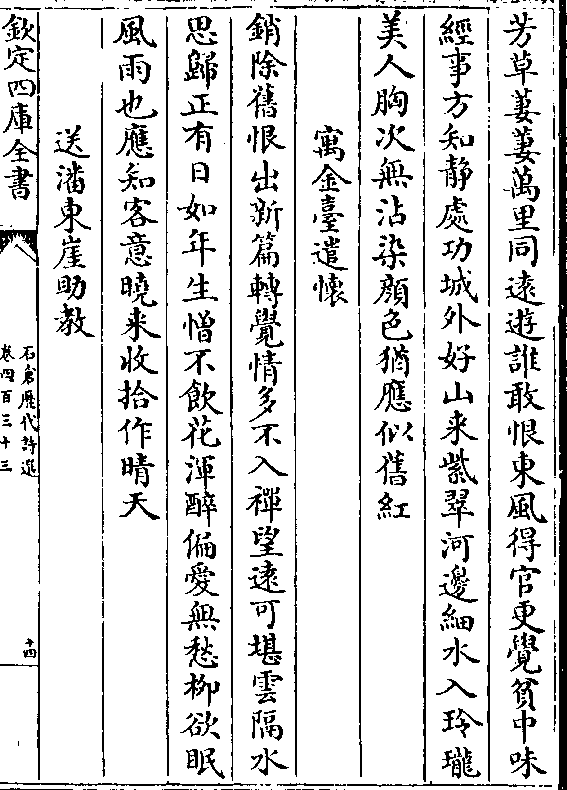 芳草萋萋萬里同遠遊誰敢恨東風得官更覺貧中味
經事方知静處功城外好山来紫翠河邊細水入玲瓏
美人胸次無沾染顔色猶應似舊紅
寓金臺遣懷
銷除舊恨出新篇轉覺情多不入禪望遠可堪雲隔水
思歸正有日如年生憎不飲花渾醉偏愛無愁柳欲眠
風雨也應知客意曉来收拾作晴天
送潘東崖助教
欽定四庫全書
石倉歷代詩選
卷四百三十三
十四